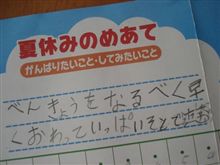 夏休みのめあて
がんばりたいこと・してみたいこと
べんきょうをなるべく早
くおわっていっぱいそとで